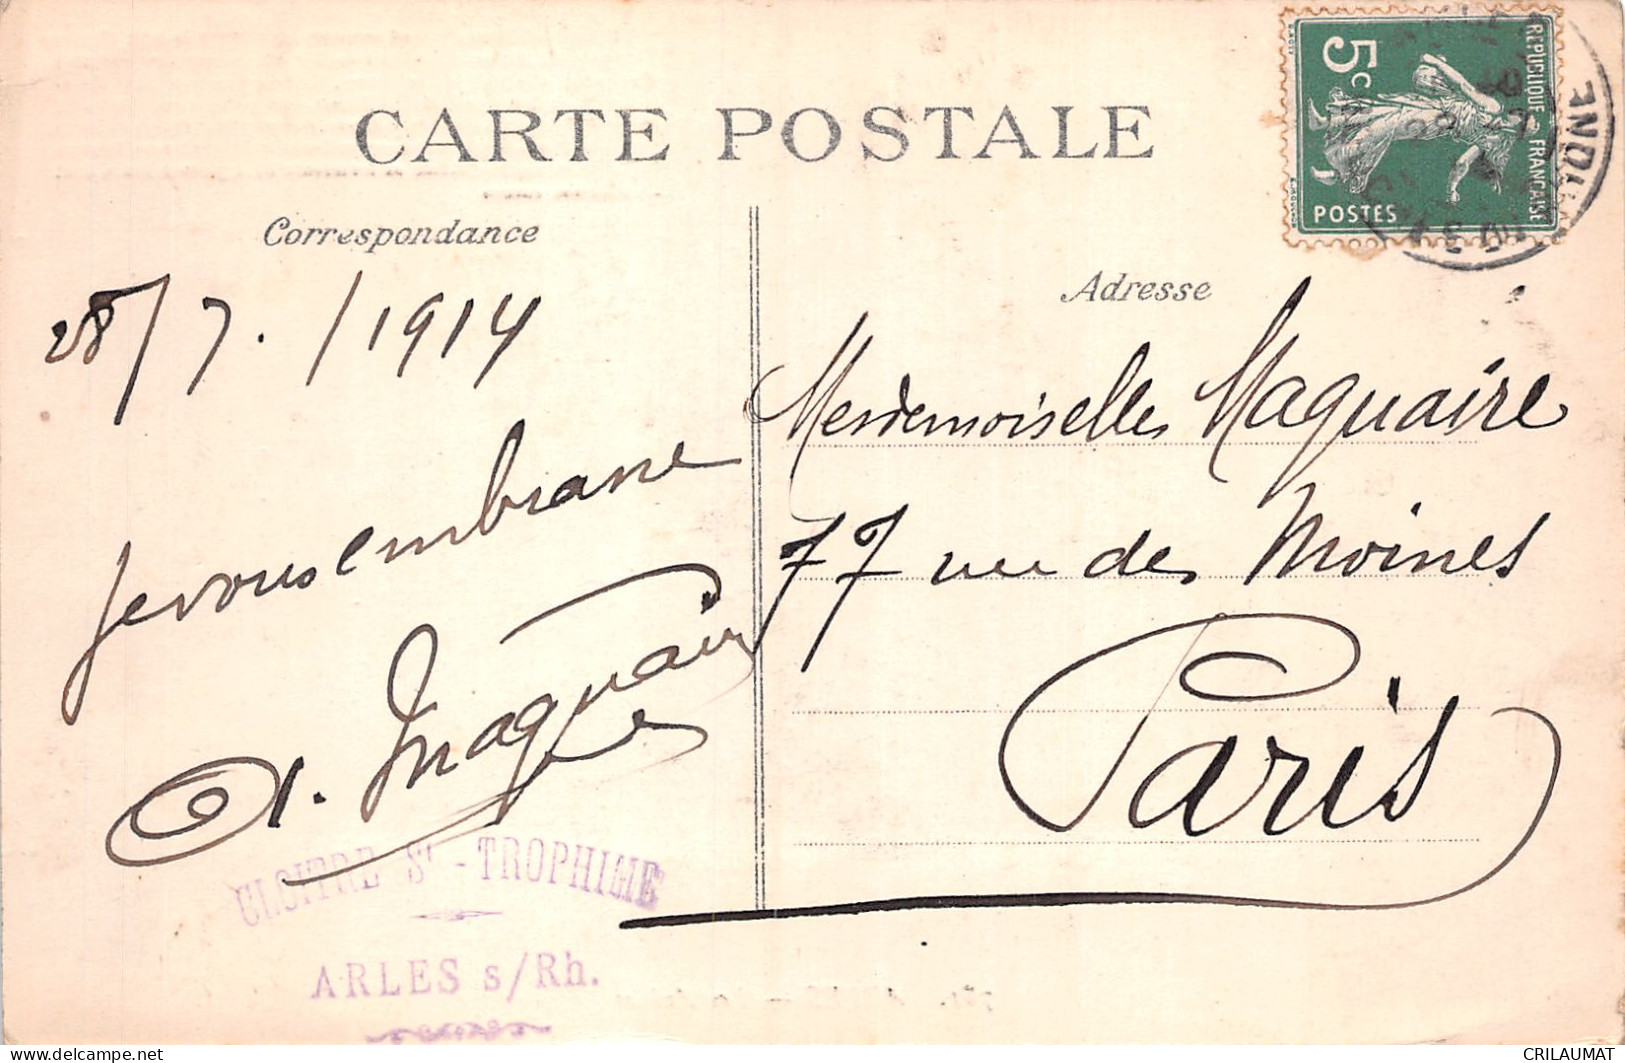 CARTE POSTALE
REPUBLIQUE FRANÇAISE
5c
POSTES
Correspondance
Adresse
28/7./1914
Je vous embrasse
A. Maquaire
Mesdemoiselles Maquaire
77 rue des Moines
Paris
CLOITRE St-TROPHIME
ARLES s/Rh.
delcampe.net
CRILAUMAT